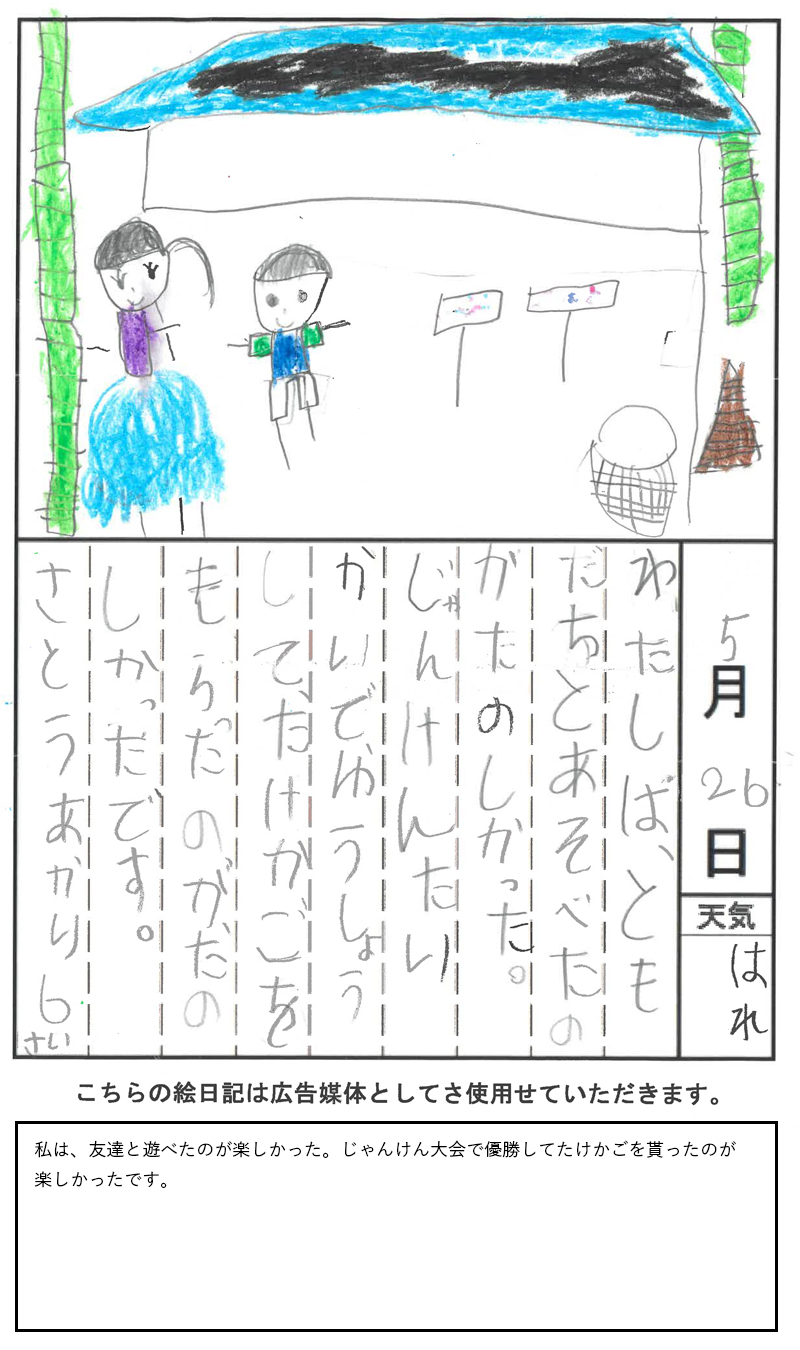 5月26日
天気
はれ
わたしば、とも
だちとあそべたの
がたのしかった。
じゃんけんたい
かいでゆうしょう
してたけかごを
もらったのがだの
しかったです。
さとうあかり6さい
こちらの絵日記は広告媒体としてさ使用せていただきます。
私は、友達と遊べたのが楽しかった。じゃんけん大会で優勝してたけかごを貰ったのが
楽しかったです。